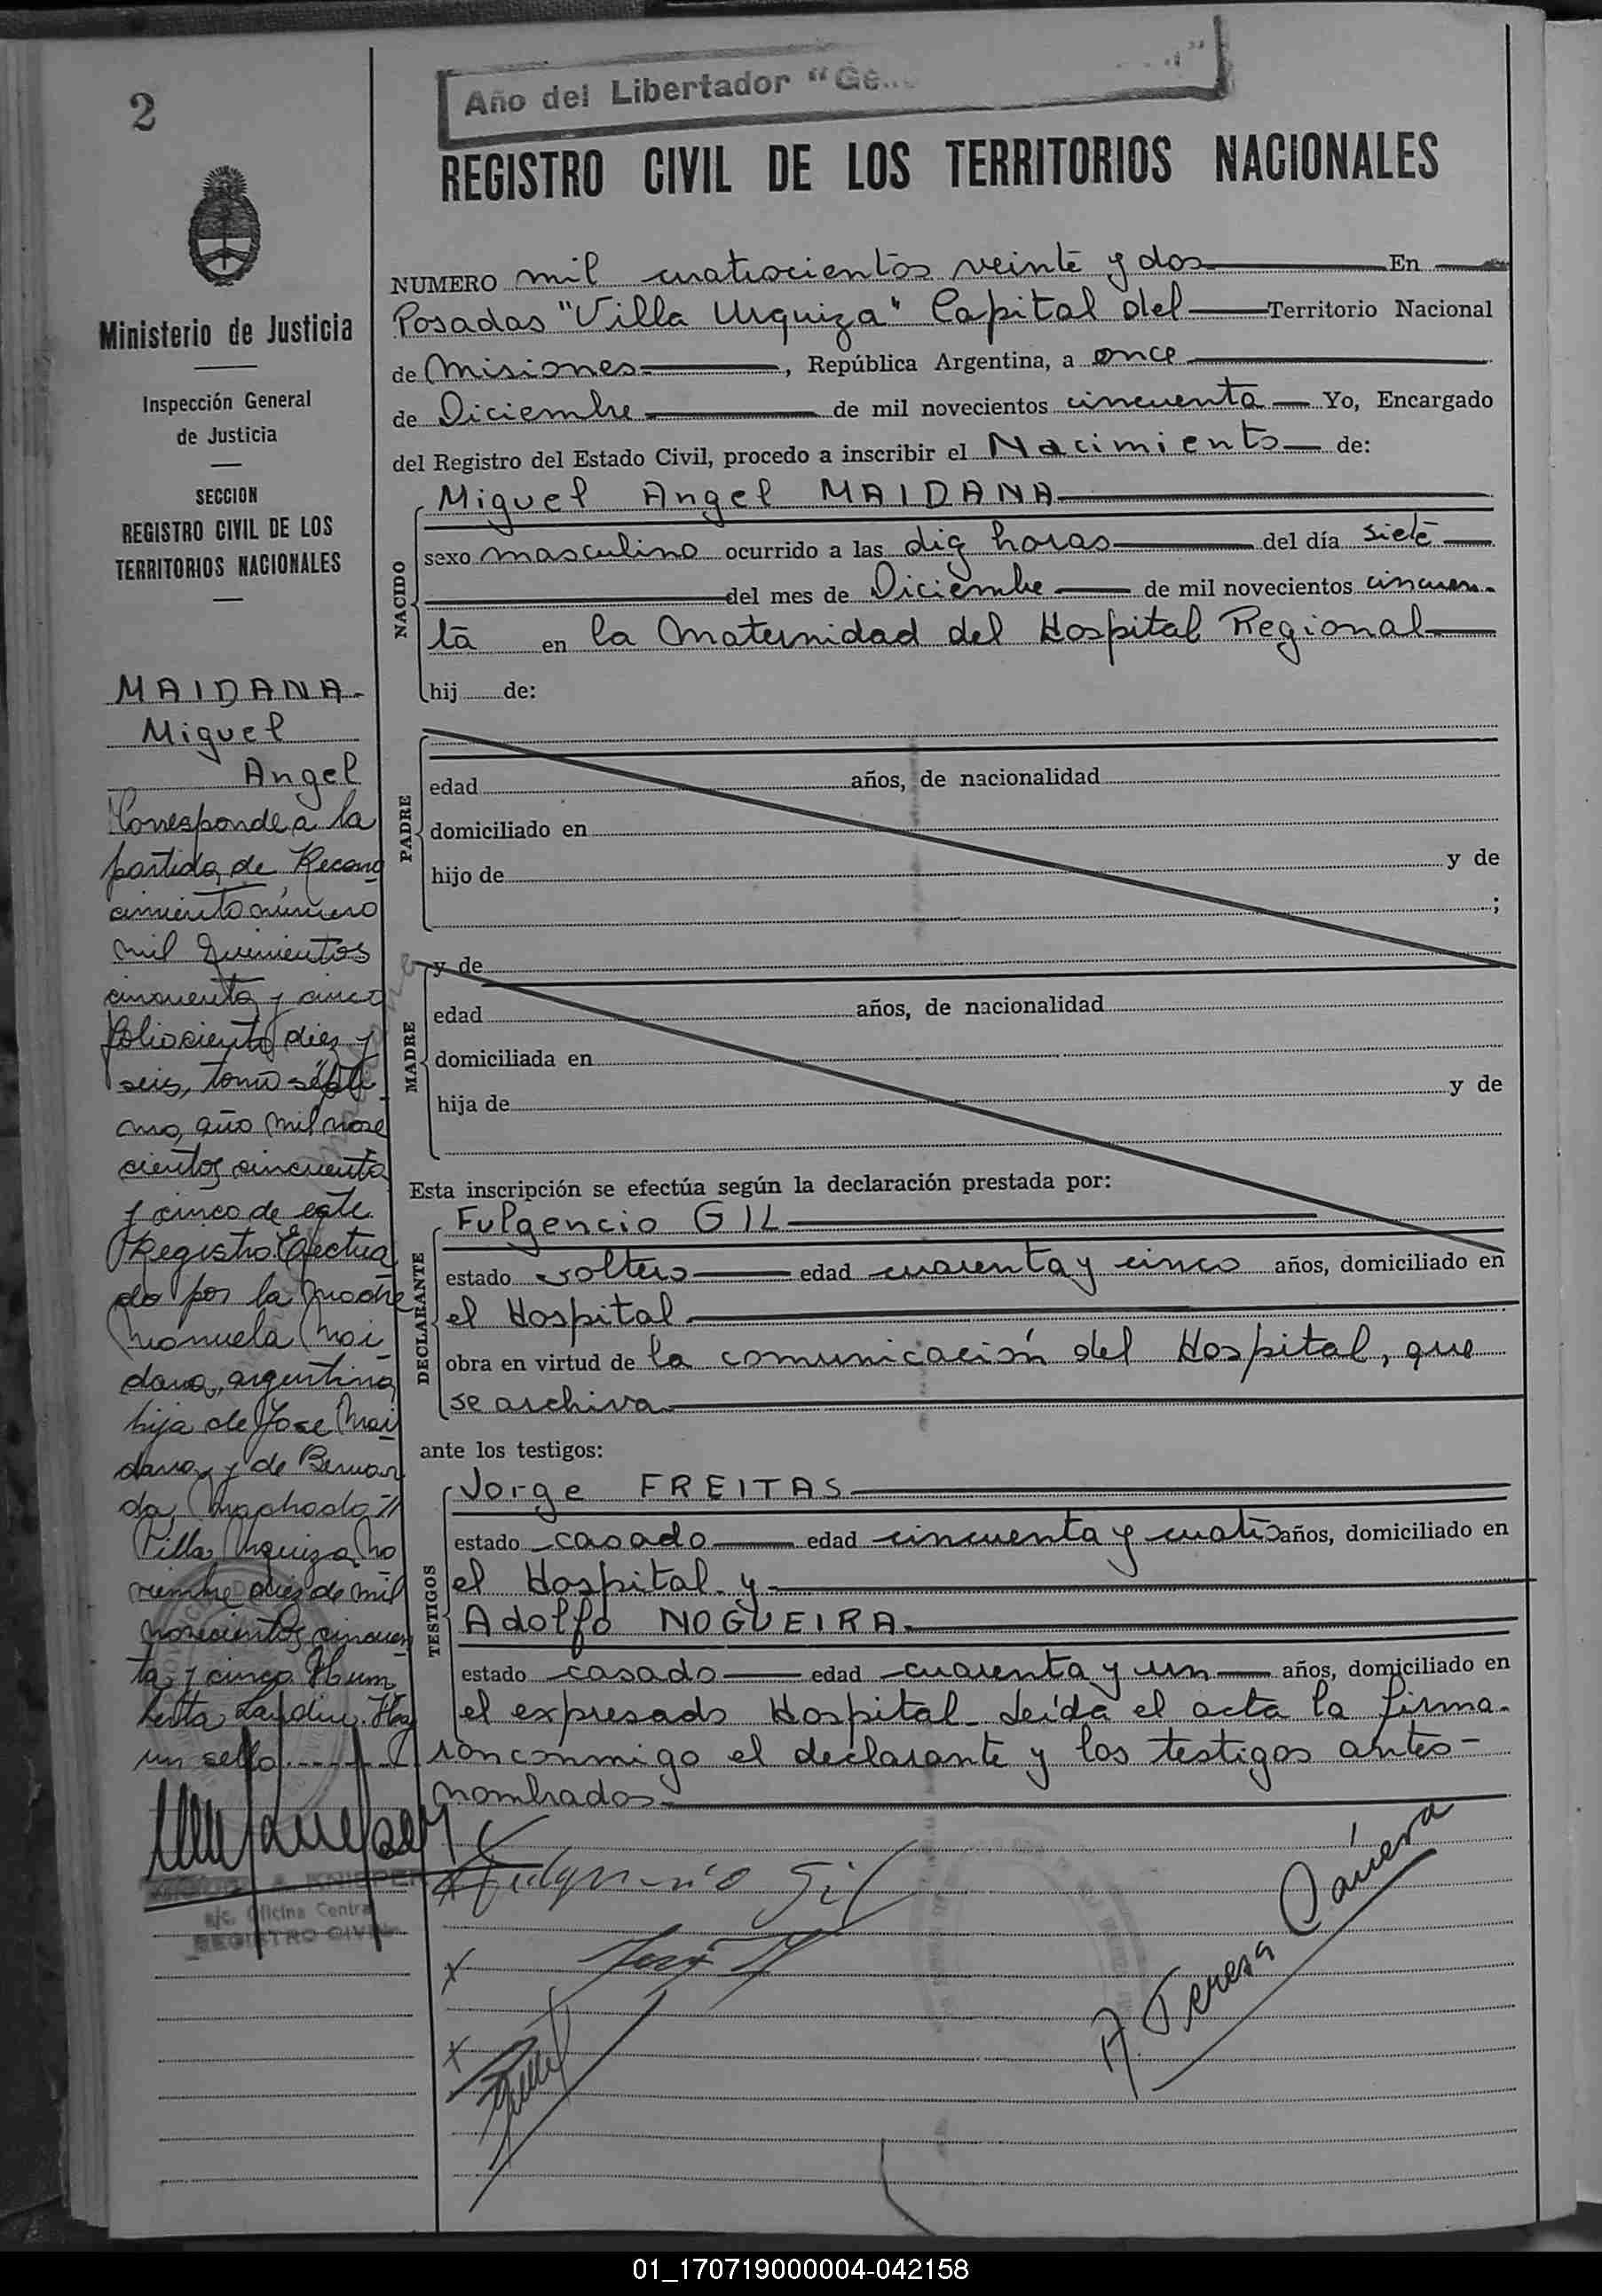 2
Año del Libertador "Ge
REGISTRO CIVIL DE LOS TERRITORIOS NACIONALES
Ministerio de Justicia
Inspección General
de Justicia
SECCION
REGISTRO CIVIL DE LOS
TERRITORIOS NACIONALES
MAIDANA
Miguel
Angel
Corresponde a la
partida de Recono
cimiento número
mil quinientos
cincuenta y cinco
folio ciento diez y
seis, tomo sépti
mo, año mil nove
cientos cincuenta
y cinco de este
Registro Efectua
do por la madre
Manuela Mai
dana, argentina
hija de José Mai
dana y de Bernar
da Machado
Villa Urquiza No
viembre diez de mil
novecientos cincuen
ta y cinco Hum
berto Hay
un sello
A. KNIPPER
a/c. Oficina Central
REGISTRO CIVIL
NUMERO mil cuatrocientos veinte y dos En
Posadas "Villa Urquiza" Capital del Territorio Nacional
de Misiones, República Argentina, a once
de Diciembre de mil novecientos cincuenta Yo, Encargado
del Registro del Estado Civil, procedo a inscribir el Nacimiento de:
NACIDO
Miguel Angel MAIDANA
sexo masculino ocurrido a las diez horas del día siete
del mes de Diciembre de mil novecientos cincuen
ta en la Maternidad del Hospital Regional
hij de:
PADRE
edad años, de nacionalidad
domiciliado en
hijo de y de
;
MADRE
y de
edad años, de nacionalidad
domiciliada en
hija de y de
Esta inscripción se efectúa según la declaración prestada por:
DECLARANTE
Fulgencio GIL
estado soltero edad cuarenta y cinco años, domiciliado en
el Hospital
obra en virtud de la comunicación del Hospital, que
se archiva
ante los testigos:
TESTIGOS
Jorge FREITAS
estado casado edad cincuenta y cuatro años, domiciliado en
el Hospital y
Adolfo NOGUEIRA
estado casado edad cuarenta y un años, domiciliado en
el expresado Hospital. Leída el acta la firma-
ron conmigo el declarante y los testigos antes-
nombrados
Fulgencio Gil
A. Teresa
01_170719000004-042158